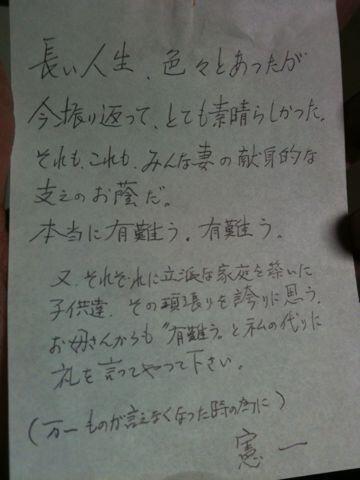 長い人生、色々とあったが
今、振り返って、とても素晴らしかった。
それも、これも、みんな妻の献身的な
支えのお蔭だ。
本当に有難う。有難う。
又、それぞれに立派な家庭を築いた
子供達、その頑張りを誇りに思う。
お母さんからも"有難う"と私の代りに
礼を言ってやって下さい。
(万一ものが言えなくなった時の為に)
憲一